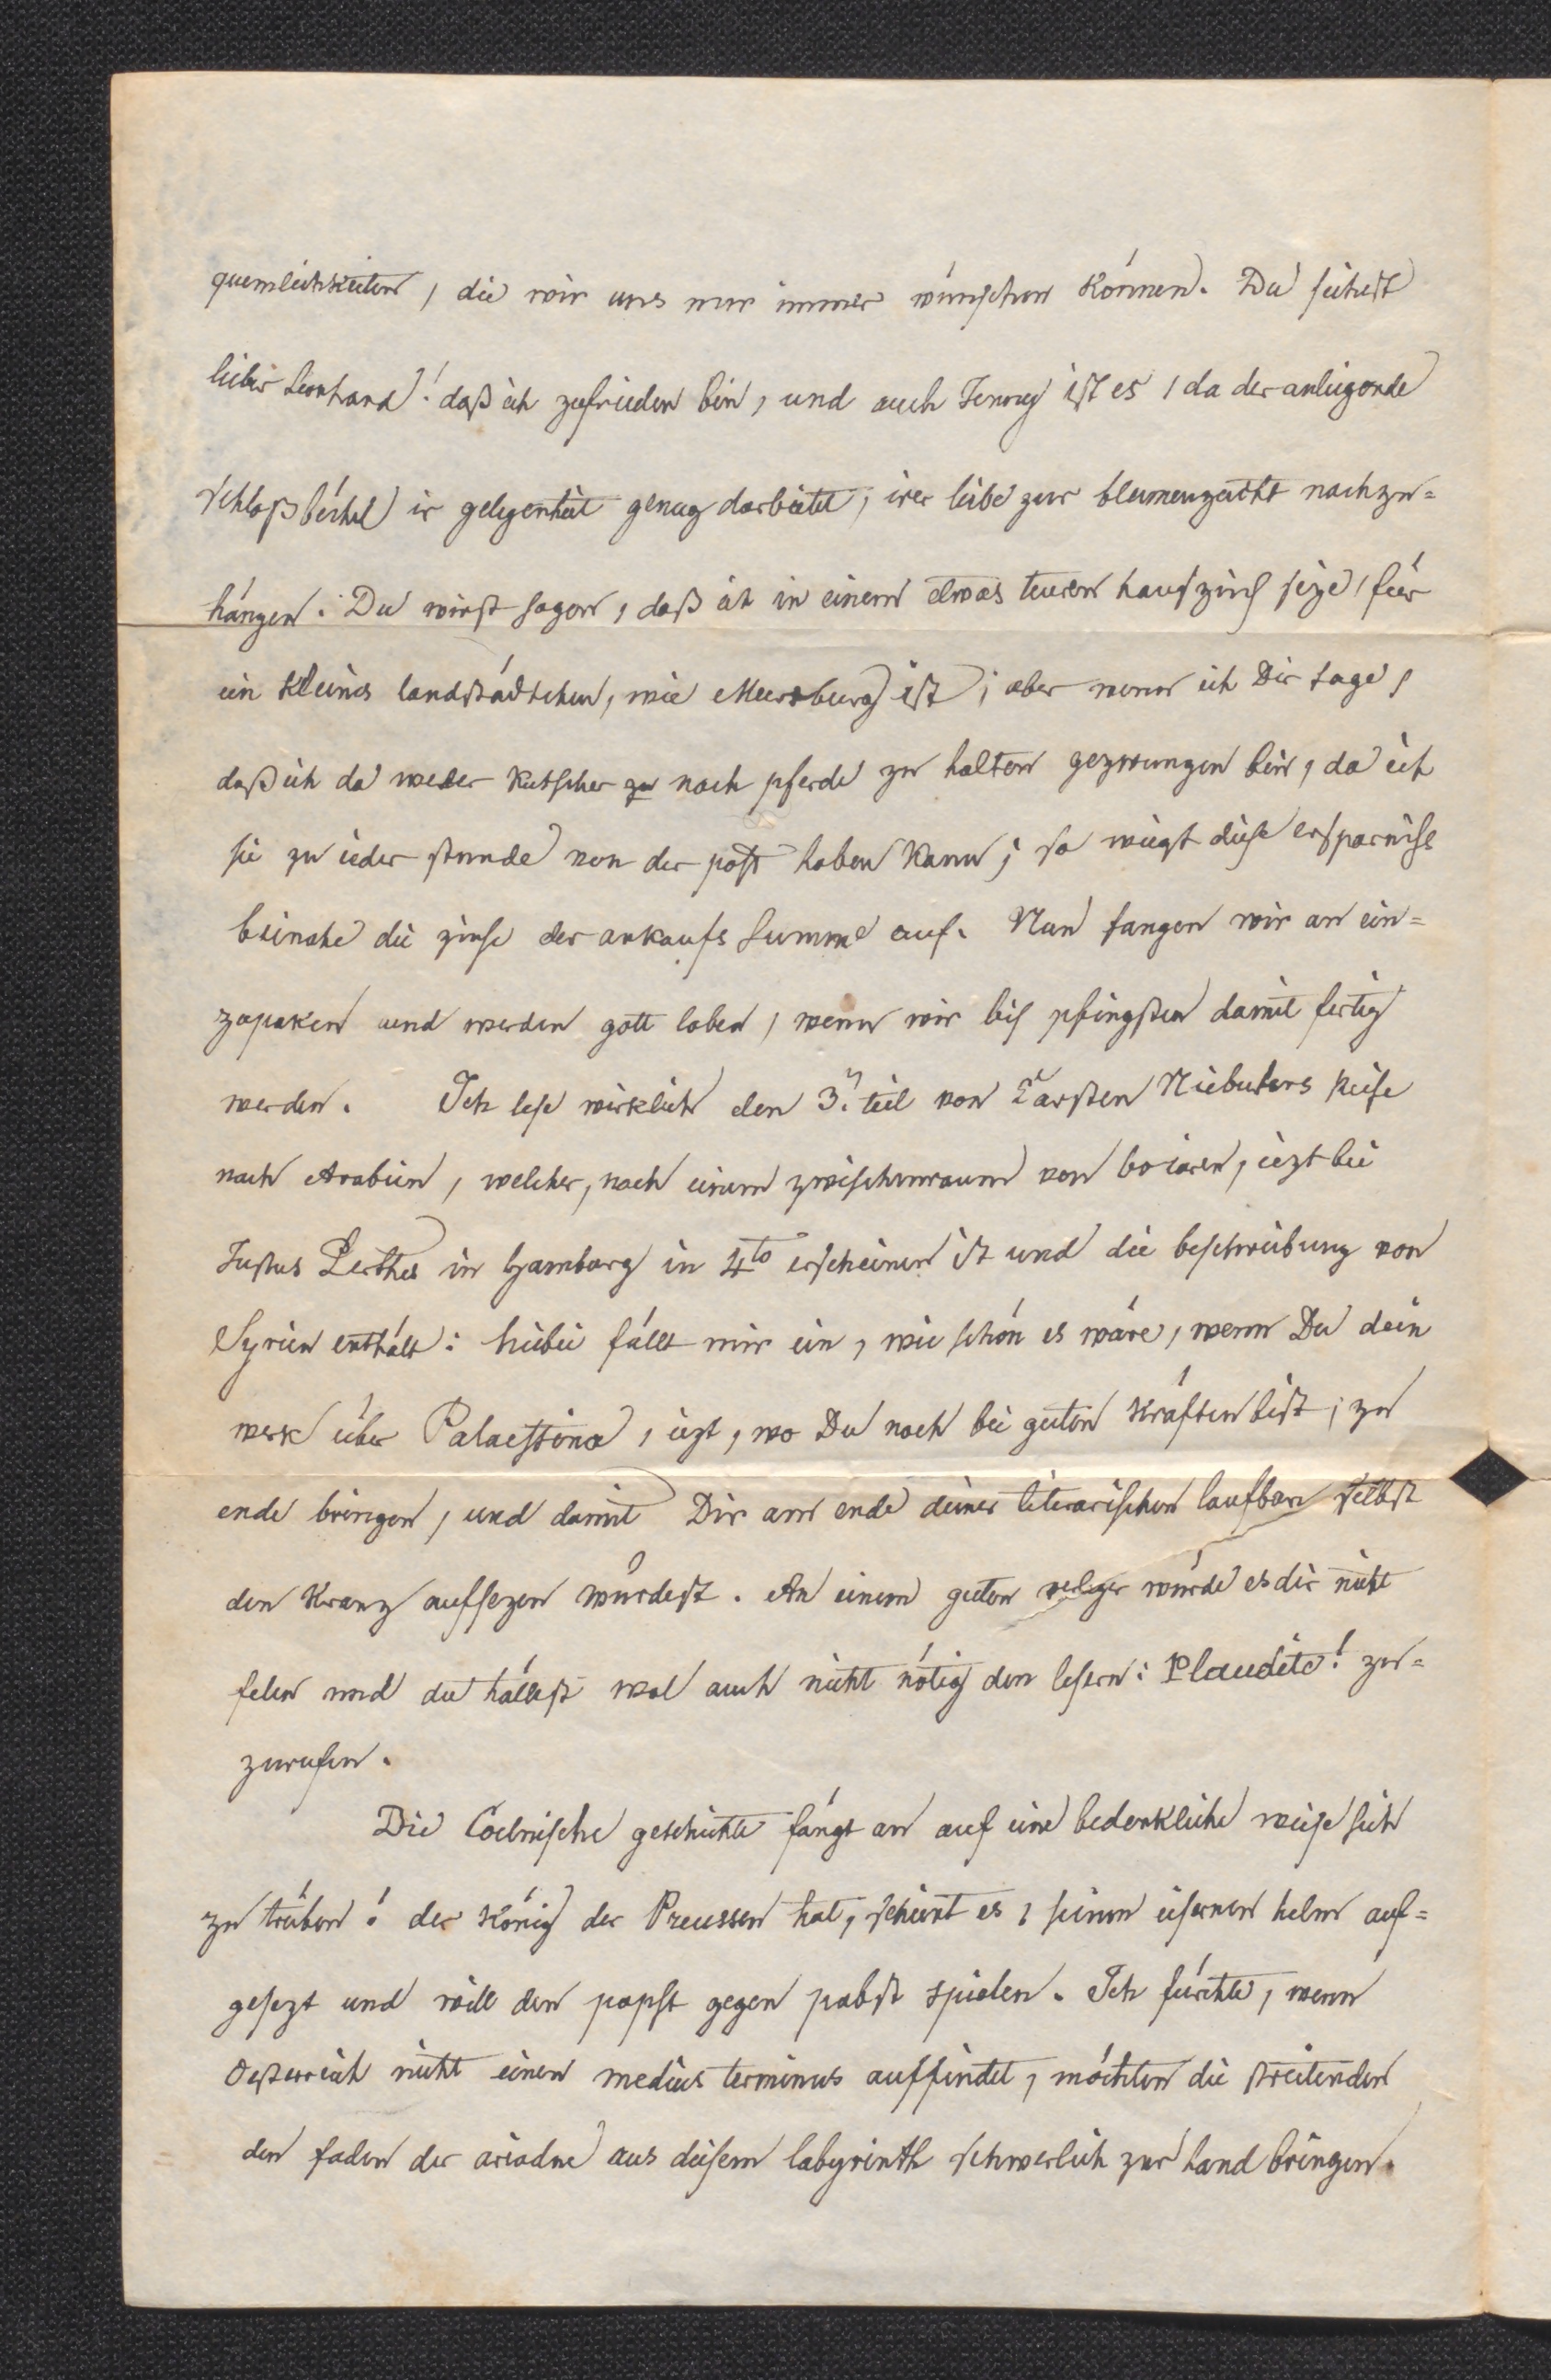 quemlichkeiten, die wir uns nur immer wünschen können. Du siehest
lieber Leonhard! daß ich zufrieden bin, und auch Jenny ist es, da der anliegende
schloßbüchel ir gelegenheit genug darbietet, irer liebe zur blumenzucht nachzu=
hängen. Du wirst sagen, daß ich in einem etwas teuren hauszins size, für
ein kleines landstädtchen, wie Meersburg ist; aber wenn ich Dir sage,
daß ich da weder kutscher zu noch pferde zu halten gezwungen bin, da ich
sie zu ieder stunde von der post haben kann; so wiegt diese ersparniss
beinahe die zinse der ankaufs summe auf. Nun fangen wir an ein=
zupaken und werden gott loben, wenn wir bis pfingsten damit fertig
werden. Ich lese wirklich den 3.n teil von Carsten Niebuhrs Reise
nach Arabien, welcher, nach einem zwischenraum von 60 iaren, iezt bei
Justus Perthes in Hamburg in 4to erschienen ist und die beschreibung von
Syrien enthält: hiebei fällt mir ein, wie schön es wäre, wenn Du dein
werk über Palaestina, iezt, wo Du noch bei guten kräften bist, zu
ende bringen, und damit Dir am ende deiner literarischen laufban selbst
den kranz aufsezen würdest. An einem guten verleger würde es dir nicht
felen und du hättest wol auch nicht nötig den lesern: Plaudite! zu=
zurufen.
Die Coelnische geschichte fängt an auf eine bedenkliche weise sich
zu trüben! der könig der Preussen hat, scheint es, seinen eisernen helm auf=
gesezt und will den papst gegen pabst spielen. Ich fürchte, wenn
Oesterreich nicht einen medius terminus auffindet, möchten die streitenden
den faden der ariadne aus diesem labyrinth schwerlich zur hand bringen.